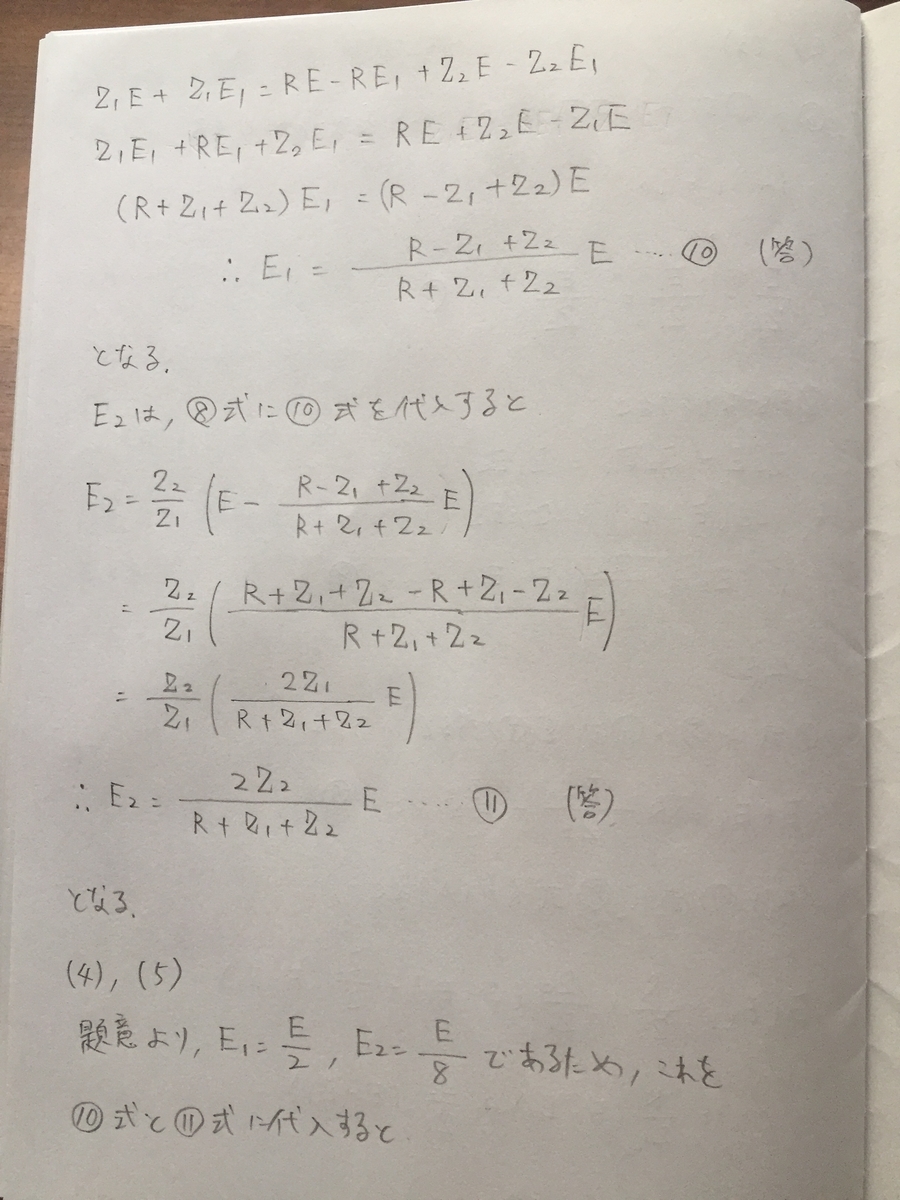 Z₁E + Z₁E₁ = RE - RE₁ + Z₂E - Z₂E₁
Z₁E₁ + RE₁ + Z₂E₁ = RE + Z₂E - Z₁E
(R + Z₁ + Z₂) E₁ = (R - Z₁ + Z₂) E
∴ E₁ = \frac{R - Z₁ + Z₂}{R + Z₁ + Z₂} E ····· ⑩ (答)
となる.
E₂は, ⑧式に⑩式を代入すると
E₂ = \frac{Z₂}{Z₁} (E - \frac{R - Z₁ + Z₂}{R + Z₁ + Z₂} E)
= \frac{Z₂}{Z₁} (\frac{R + Z₁ + Z₂ - R + Z₁ - Z₂}{R + Z₁ + Z₂} E)
= \frac{Z₂}{Z₁} (\frac{2Z₁}{R + Z₁ + Z₂} E)
∴ E₂ = \frac{2Z₂}{R + Z₁ + Z₂} E ····· ⑪ (答)
となる.
(4), (5)
題意より, E₁ = \frac{E}{2}, E₂ = \frac{E}{8} であるため, これを
⑩式と⑪式に代入すると